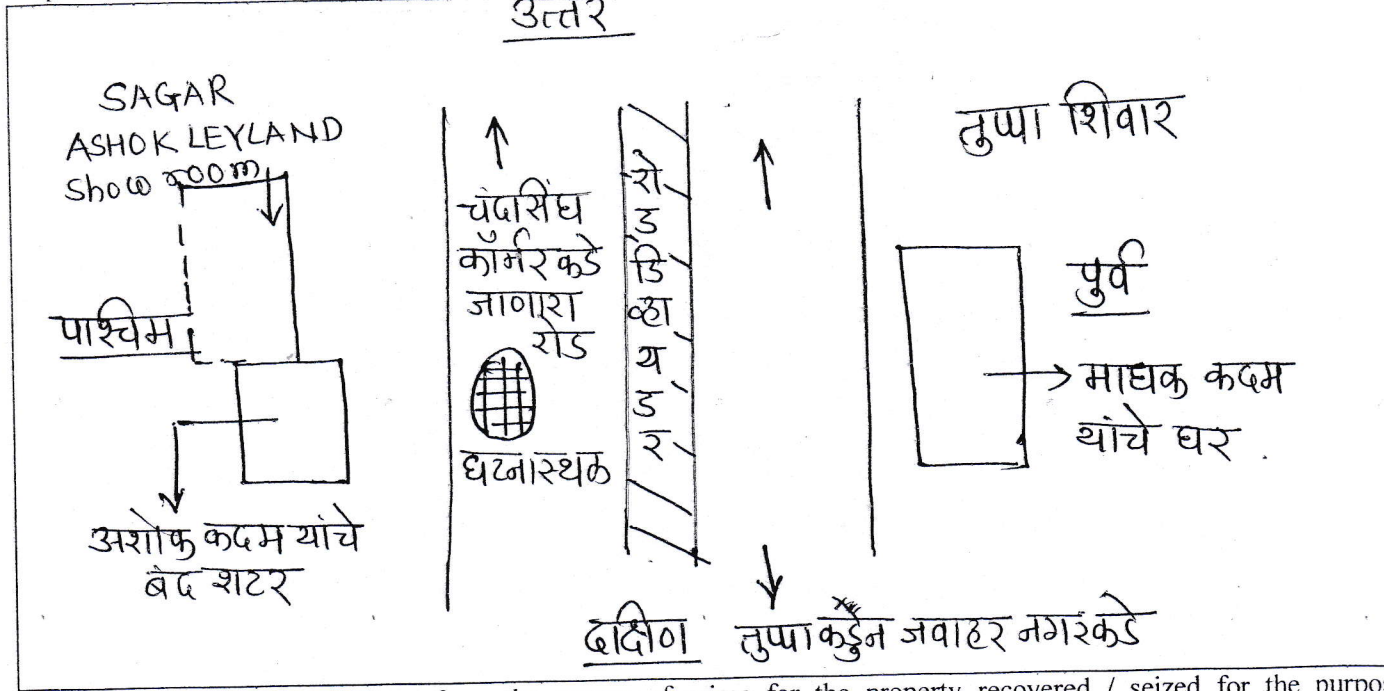 उत्तर
SAGAR
ASHOK LEYLAND
Show room
पाश्चिम
अशोक कदम यांचे
बंद शटर
चंदासिंघ
कॉर्नर कडे
जाणारा
रोड
घटनास्थळ
रोड डिव्हायडर
तुप्पा शिवार
पुर्व
माधव कदम
यांचे घर
दक्षिण
तुप्पा कडुन जवाहर नगरकडे
for the property recovered / seized for the purpos